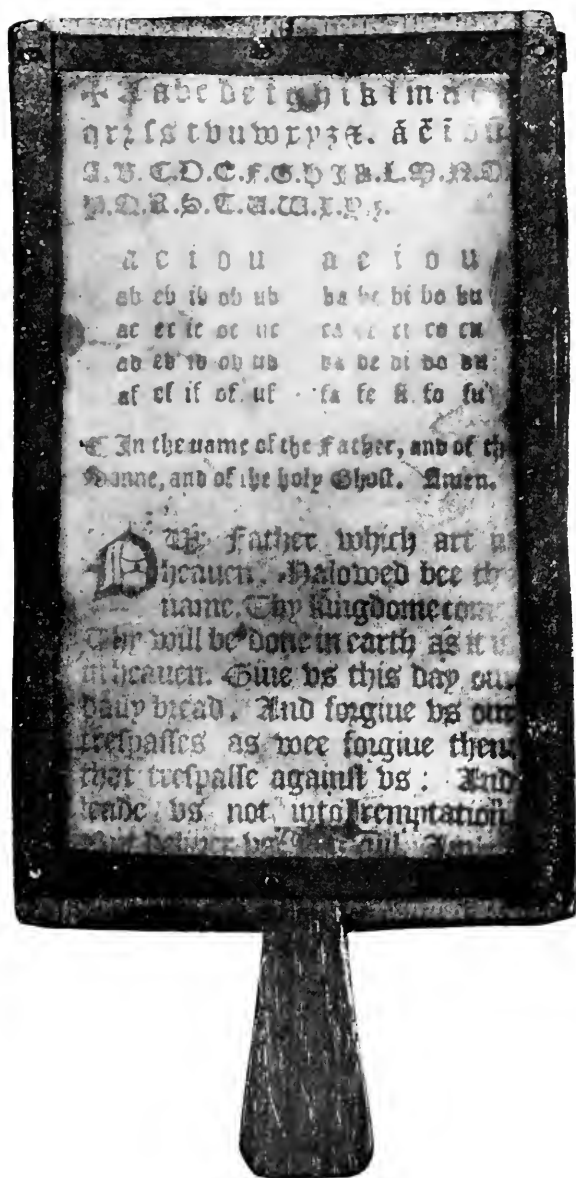 ✠ A a b c d e f g h i k l m n
q r ꝛ ſ s t v u w x y z &. á é í ó ú
A.B.C.D.E.F.G.H I K.L.M.N.O
P.Q.R.S.T.U.W.X.Y.z.
a e i o u a e i o u
ab eb ib ob ub ba be bi bo bu
ac ec ic oc uc ca ce ci co cu
ad ed id od ud da de di do du
af ef if of uf fa fe fi fo fu
¶ In the name of the Father, and of th
Sonne, and of the holy Ghoſt. Amen.
OUR Father which art in
heauen. Halowed bee thy
name. Thy kingdome come
Thy will be done in earth as it is
in heauen. Giue vs this day our
daily bread. And forgiue vs our
treſpaſſes as wee forgiue them
that treſpaſſe againſt vs: And
leade vs not into temptation.
But deliuer vs from euil. Amen